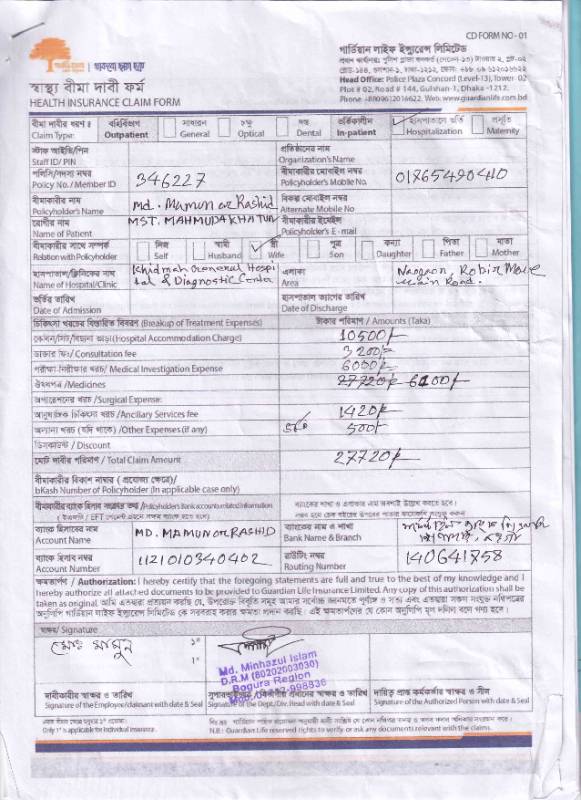 CD FORM NO - 01
গার্ডিয়ান লাইফ ইন্স্যুরেন্স লিমিটেড
Head Office: Police Plaza Concord (Level-13), Tower- 02
Plot # 02, Road # 144, Gulshan-1, Dhaka -1212.
Phone +8809612016622, Web: www.guardianlife.com.bd
স্বাস্থ্য বীমা দাবী ফর্ম
HEALTH INSURANCE CLAIM FORM
বীমা দাবীর ধরণ বহির্বিভাগ সাধারন চক্ষু দন্ত হাসপাতালে ভর্তি প্রসূতি
Claim Type: Outpatient General Optical Dental In-patient Hospitalization Maternity
স্টাফ আইডি/পিন প্রতিষ্ঠানের নাম
Staff ID/ PIN Organization's Name
পলিসি/সদস্য নম্বর বীমাকারীর মোবাইল নম্বর
Policy No. / Member ID 346227 Policyholder's Mobile No.
বীমাকারীর নাম বিকল্প মোবাইল নম্বর
Policyholder's Name Md. Mamun or Rashid Alternate Mobile No
রোগীর নাম বীমাকারীর ইমেইল
Name of Patient MST. MAHMUDA KHATUN Policyholder's E-mail
বীমাকারীর সাথে সম্পর্ক নিজ স্বামী স্ত্রী পুত্র কন্যা পিতা মাতা
Relation with Policyholder Self Husband Wife Son Daughter Father Mother
হাসপাতাল/ক্লিনিকের নাম Khidmah General Hospi এলাকা Naogaon,
Name of Hospital/Clinic tal & Diagnostic Center Area Road.
ভর্তির তারিখ হাসপাতাল ত্যাগের তারিখ
Date of Admission Date of Discharge
চিকিৎসা খরচের বিস্তারিত বিবরণ (Breakup of Treatment Expenses) টাকার পরিমাণ / Amounts (Taka)
(Hospital Accommodation Charge) 10500/-
ডাক্তার ফি/ Consultation fee 3200/-
পরীক্ষা-নিরীক্ষার খরচ/ Medical Investigation Expense 6000/-
ঔষধপত্র /Medicines 27720/- 6100/-
অপারেশনের খরচ /Surgical Expense
আনুষাঙ্গিক চিকিৎসা খরচ /Ancillary Services fee 1420/-
অন্যান্য খরচ (যদি থাকে) /Other Expenses (if any) 500/-
ডিসকাউন্ট / Discount
মোট দাবীর পরিমাণ / Total Claim Amount 27720/-
বীমাকারীর বিকাশ নাম্বার (প্রযোজ্য ক্ষেত্রে)/
bKash Number of Policyholder (In applicable case only)
Policyholder's Bank account related information
ব্যাংক হিসাবের নাম ব্যাংকের নাম ও শাখা
Account Name MD. MAMUN OR RASHID Bank Name & Branch
ব্যাংক হিসাব নম্বর রাউটিং নম্বর
Account Number 1121010340402 Routing Number 140641758
ক্ষমতার্পণ / Authorization: I hereby certify that the foregoing statements are full and true to the best of my knowledge and I
hereby authorize all attached documents to be provided to Guardian Life Insurance Limited. Any copy of this authorization shall be
taken as original
স্বাক্ষর/ Signature
মোঃ মামুন
Md. Minhazul Islam
D.R.M (80202003030)
Bogura Region
দাবীকারীর স্বাক্ষর ও তারিখ দায়িত্ব প্রাপ্ত কর্মকর্তার স্বাক্ষর ও সীল
Signature of the Employee/claimant with date & Seal Signature of the Dept./Div. Head with date & Seal Signature of the Authorized Person with date & Seal
Only 1* is applicable for individual insurance.
N.B.: Guardian Life reserved rights to verify or ask any documents relevant with the claims.